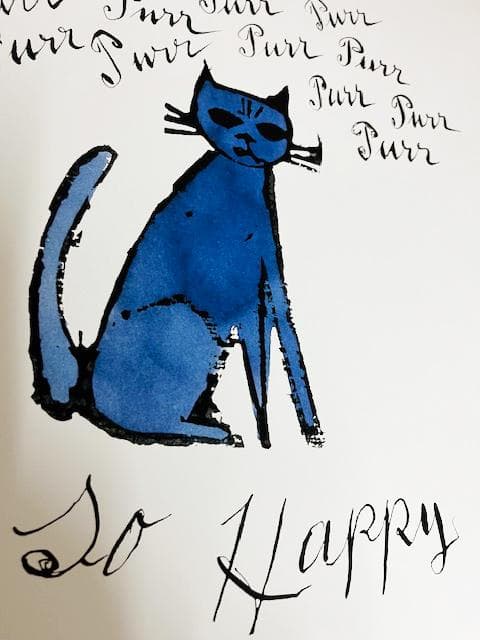 urr Purr Purr Purr
urr Purr Purr Purr
Purr Purr
Purr
So Happy